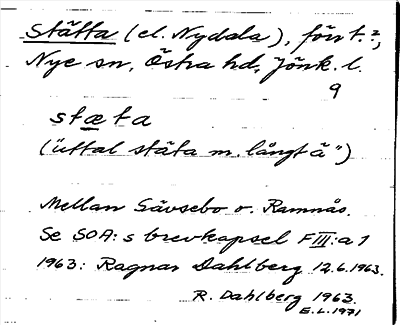 Stätta (el. Nydala), förr t.?,
Nye sn, Östra hd, Jönk. l.
9
stæta
(uttal stäta m. långt ä")
Mellan Sävsebo o. Ramnås.
Se SOA:s brevkapsel F III:a 1
1963: Ragnar Dahlberg 12.6.1963.
R. Dahlberg 1963.
E.L. 1971